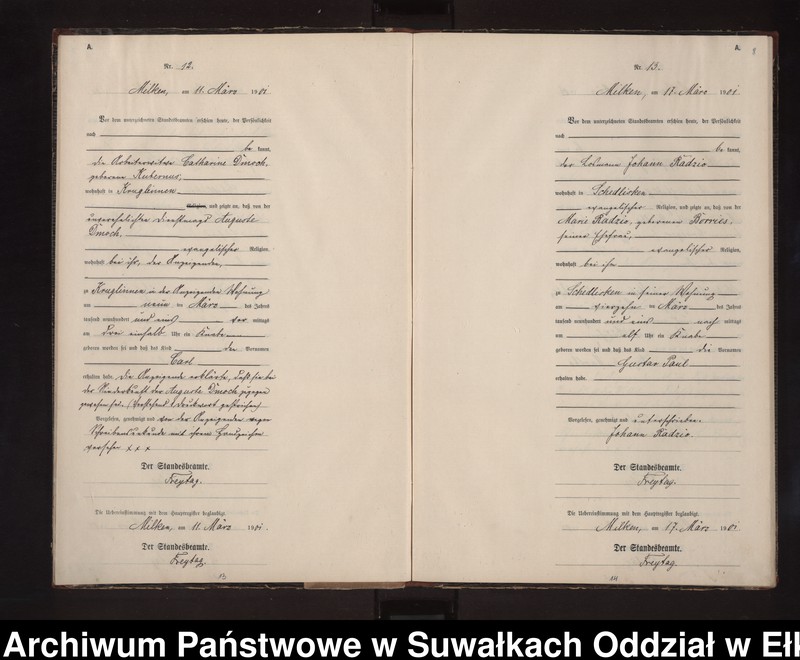 A.
Nr. 12.
Melken, am 11. März 1901
Vor dem unterzeichneten Standesbeamten erschien heute, der Persönlichkeit
nach
be kannt,
die Arbeiterwitwe Catharine Dmoch
geborene
wohnhaft in Kruglinnen
Religion, und zeigte an, daß von der
unverehelichten Dienstmagd Auguste
Dmoch.
evangelischer Religion,
wohnhaft bei ihr, der Anzeigenden,
zu Kruglinnen in der Anzeigenden Wohnung
am neun ten März des Jahres
tausend neunhundert und eins vor mittags
um drei einhalb Uhr ein Knabe
geboren worden sei und daß das Kind den Vornamen
Carl
erhalten habe. Die Anzeigende erklärte, daß sie bei
der Niederkunft der Auguste Dmoch zugegen
gewesen sei. (Vorstehend 1 Druckwort gestrichen)
Vorgelesen, genehmigt und von der Anzeigenden wegen
Schreibensunkunde mit ihrem Handzeichen
versehen x x x
Der Standesbeamte.
Freytag.
Die Uebereinstimmung mit dem Hauptregister beglaubigt.
Melken, am 11. März 1901.
Der Standesbeamte.
Freytag.
13
A.
8
Nr. 13.
Melken, am 17. März 1901
Vor dem unterzeichneten Standesbeamten erschien heute, der Persönlichkeit
nach
be kannt,
der Losmann Johann Radzio
wohnhaft in Schedlisken
evangelischer Religion, und zeigte an, daß von der
Marie Radzio, geborenen Borries,
seiner Ehefrau,
evangelischer Religion,
wohnhaft bei ihm
zu Schedlisken in seiner Wohnung
am vierzehn ten März des Jahres
tausend neunhundert und eins nach mittags
um elf Uhr ein Knabe
geboren worden sei und daß das Kind die Vornamen
Gustav Paul
erhalten habe.
Vorgelesen, genehmigt und unterschrieben.
Johann Radzio.
Der Standesbeamte.
Freytag.
Die Uebereinstimmung mit dem Hauptregister beglaubigt.
Melken, am 17. März 1901
Der Standesbeamte.
Freytag.
14
Archiwum Państwowe w Suwałkach Oddział w Eł